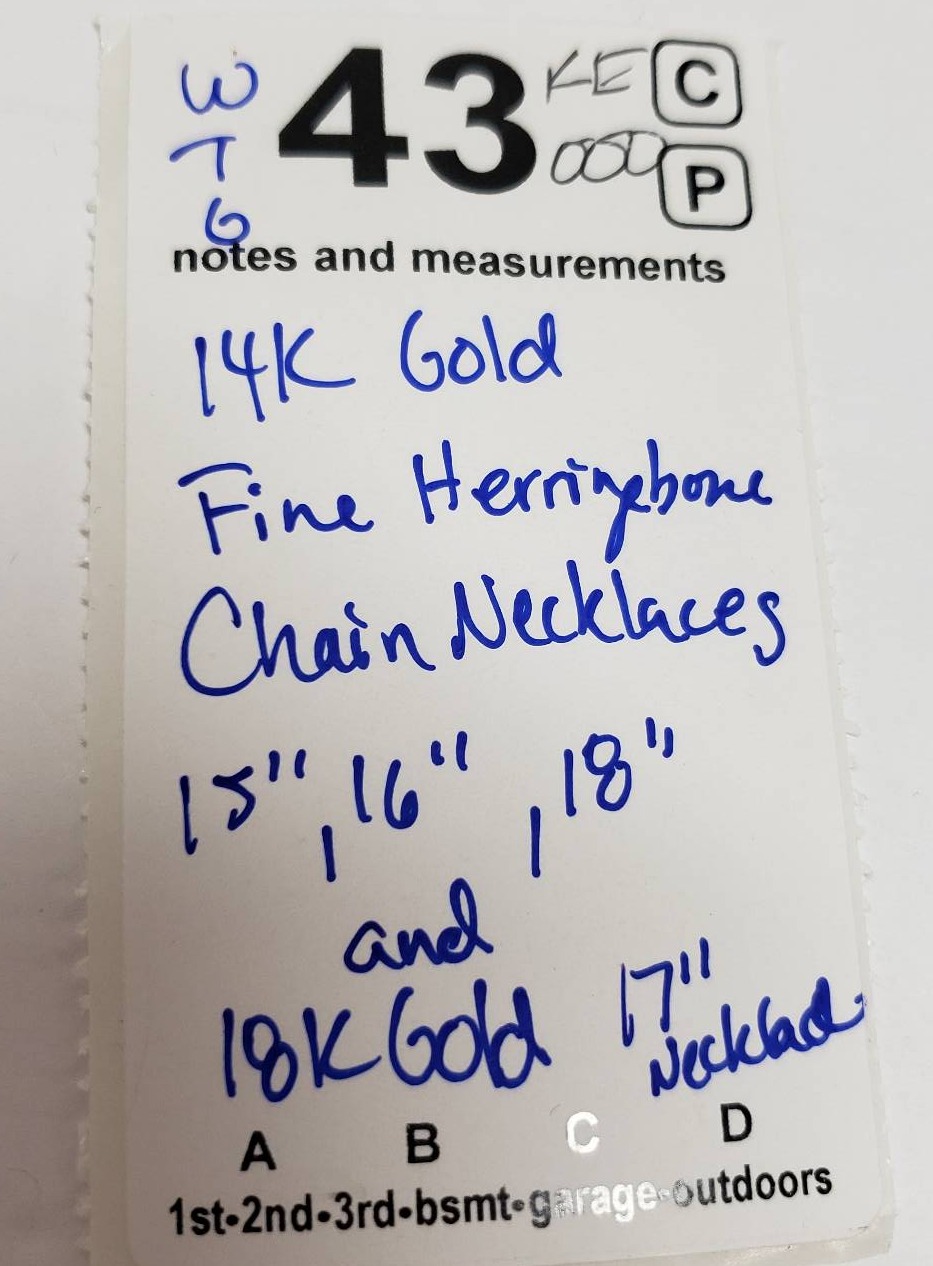 W 43 KE C
T 000 P
G
notes and measurements
14K Gold
Fine Herringbone
Chain Necklaces
15", 16", 18"
and
18K Gold 17"
Necklace
A B C D
1st•2nd•3rd•bsmt•garage•outdoors